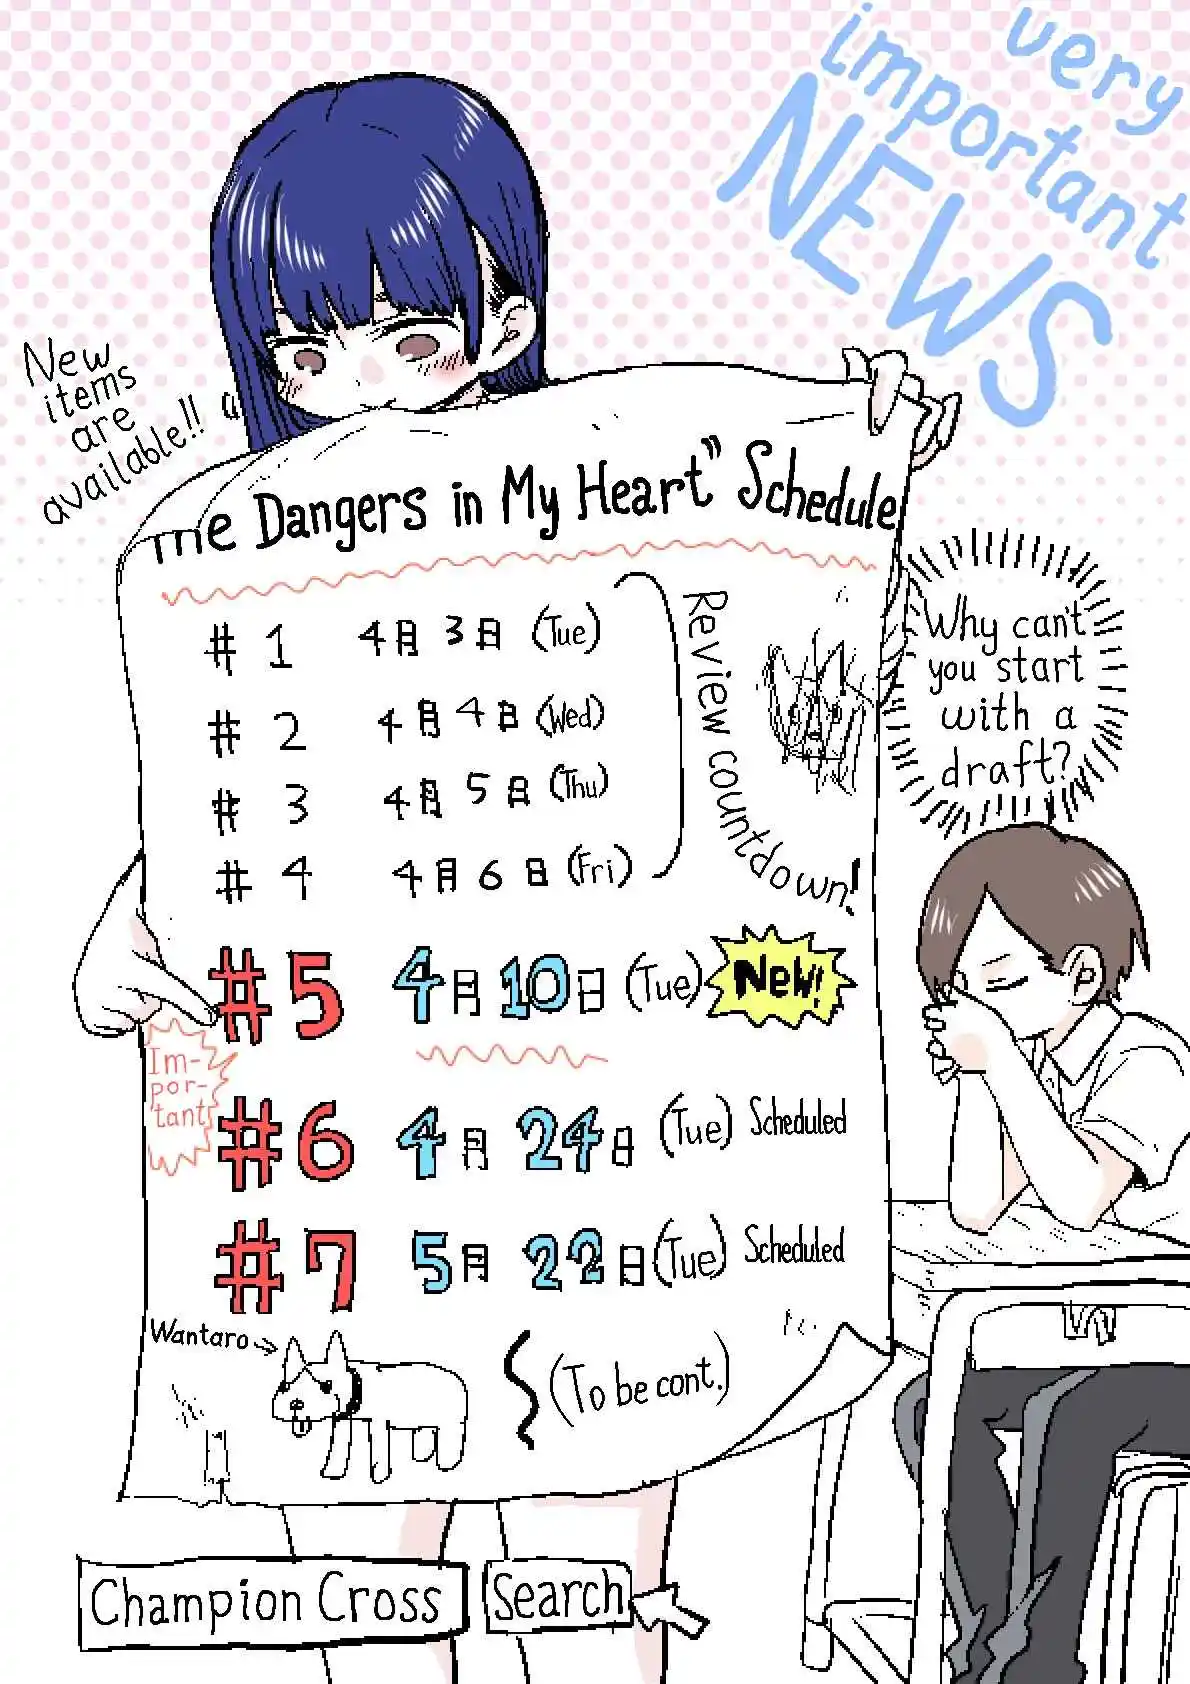 very
important
NEWS
New
items
are
available!!
The Dangers in My Heart" Schedule
# 1 4月3日 (Tue)
# 2 4月4日 (Wed)
# 3 4月5日 (Thu)
# 4 4月6日 (Fri)
Review countdown!
Why can't
you start
with a
draft?
#5 4月10日 (Tue) New!
Im-
por-
tant
#6 4月24日 (Tue) Scheduled
#7 5月22日 (Tue) Scheduled
Wantaro
(To be cont.)
Champion Cross Search